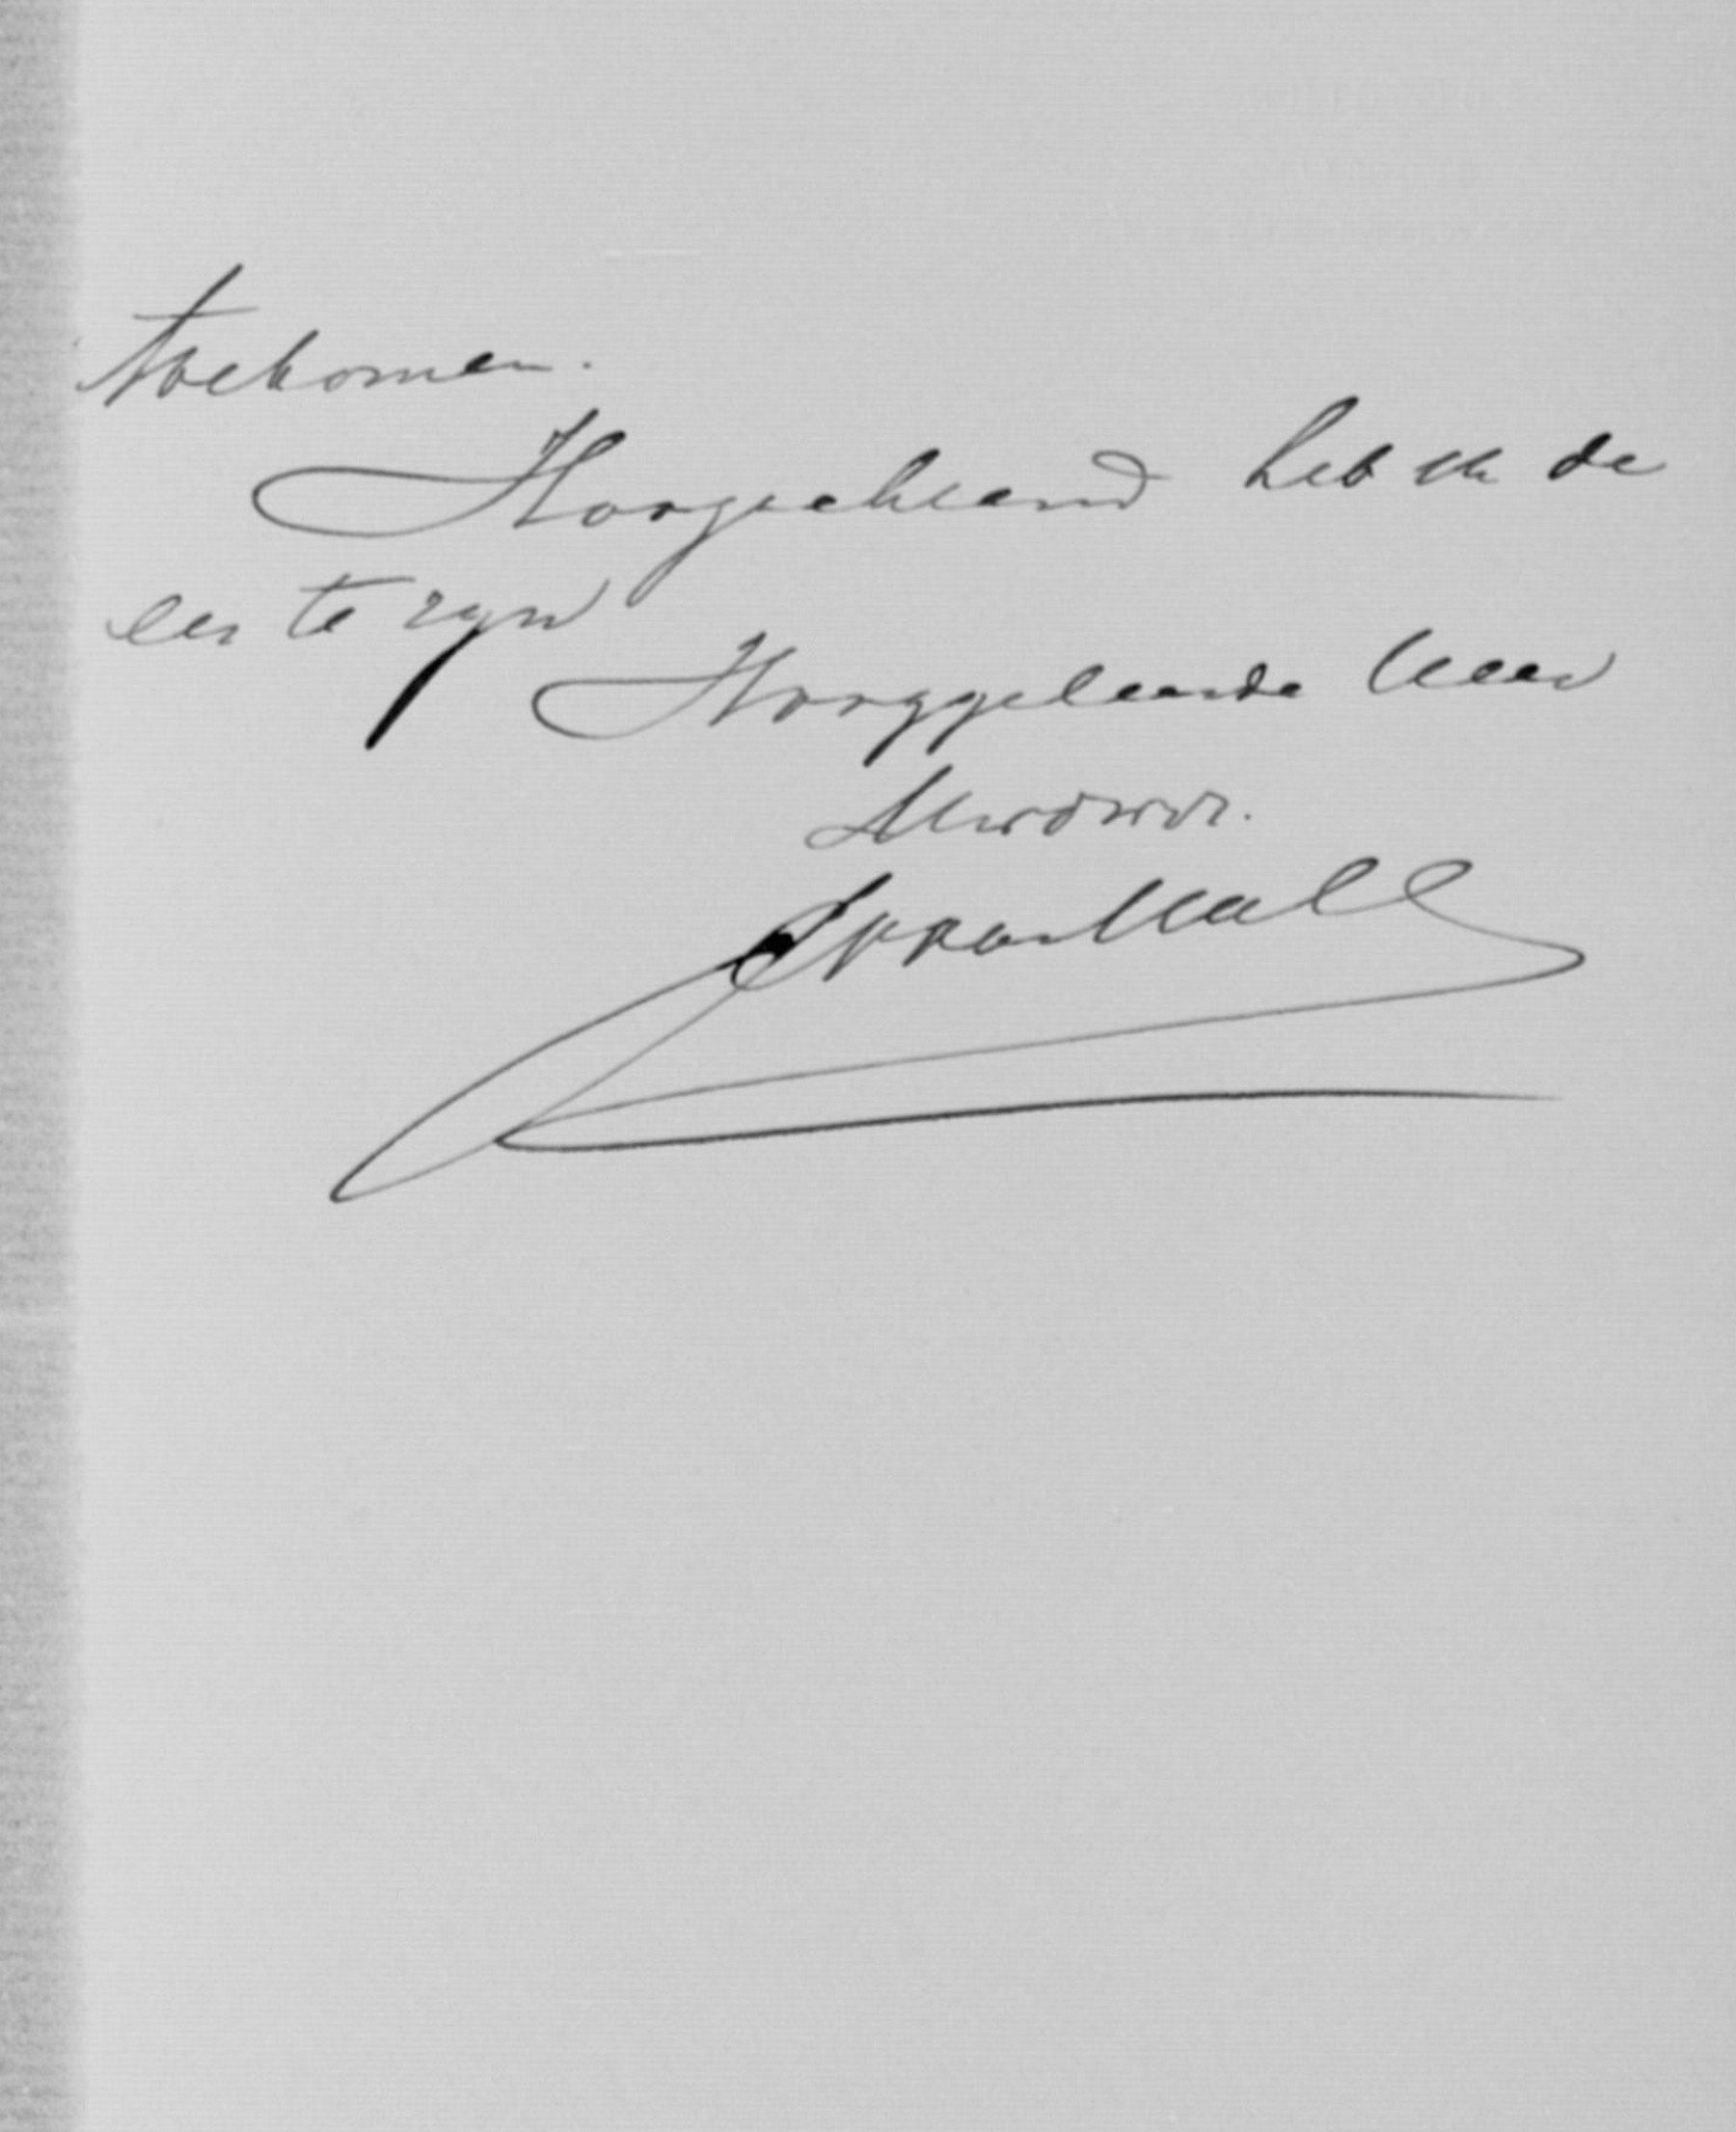 toekomen.
Hoogachtend heb ik de
eer te zijn
Hooggeleerde Heer
Uwdwdr.